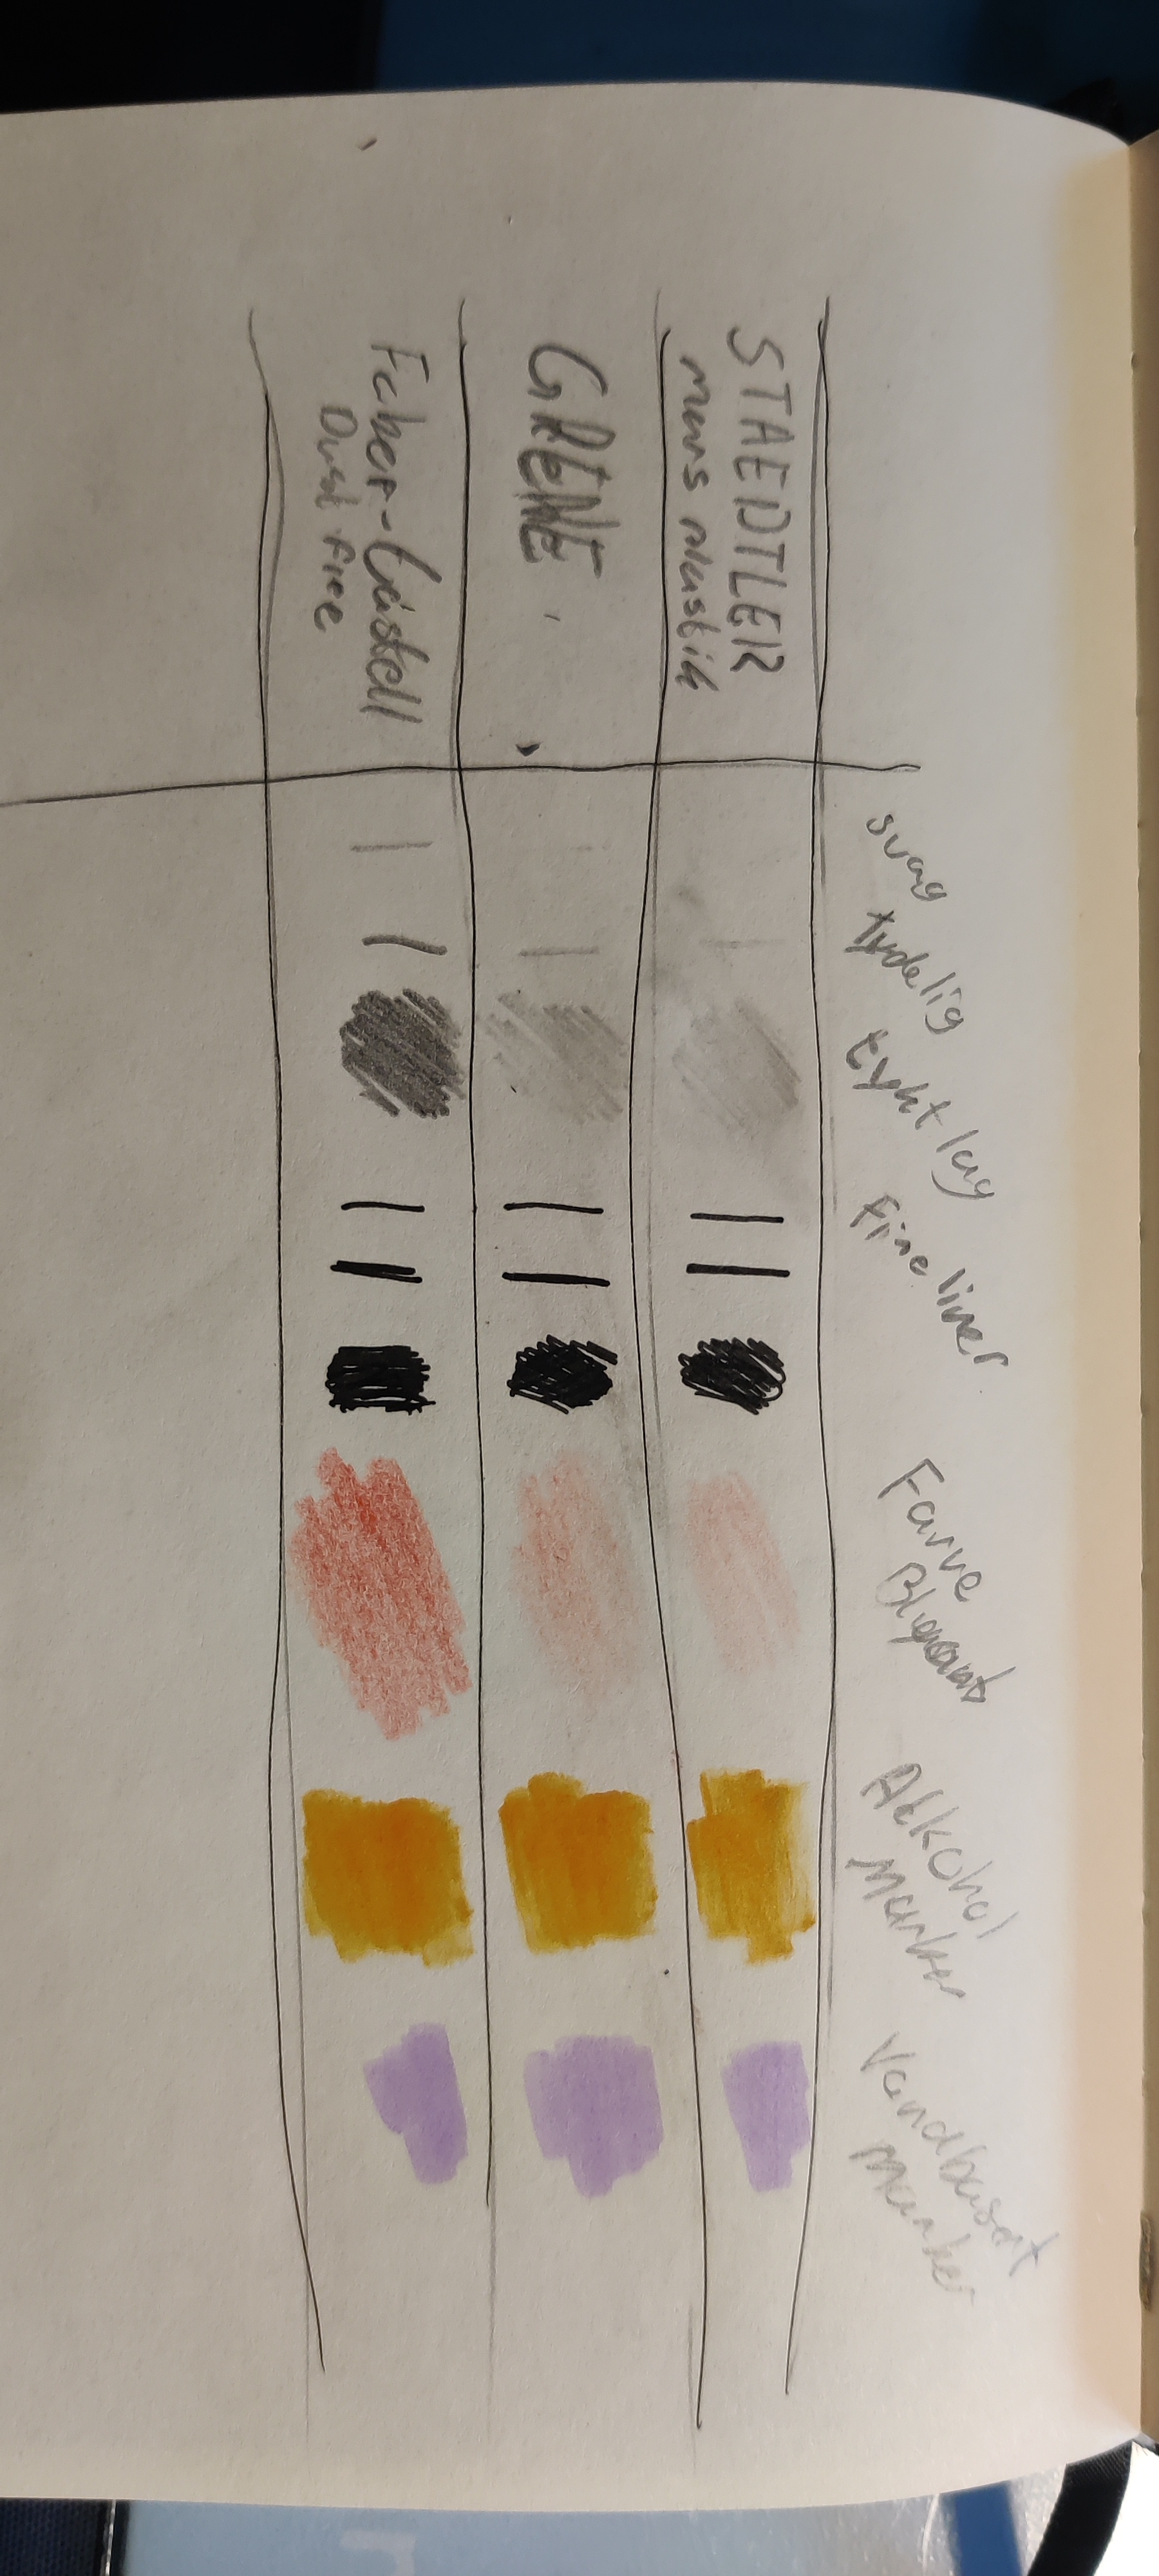 svag
tydelig
tykt lag
fine liner
Farve
Blyant
Alkohol
Marker
Vandbasert
Marker
STAEDTLER
mars plastik
GRENE
Faber-Castell
Dust Free